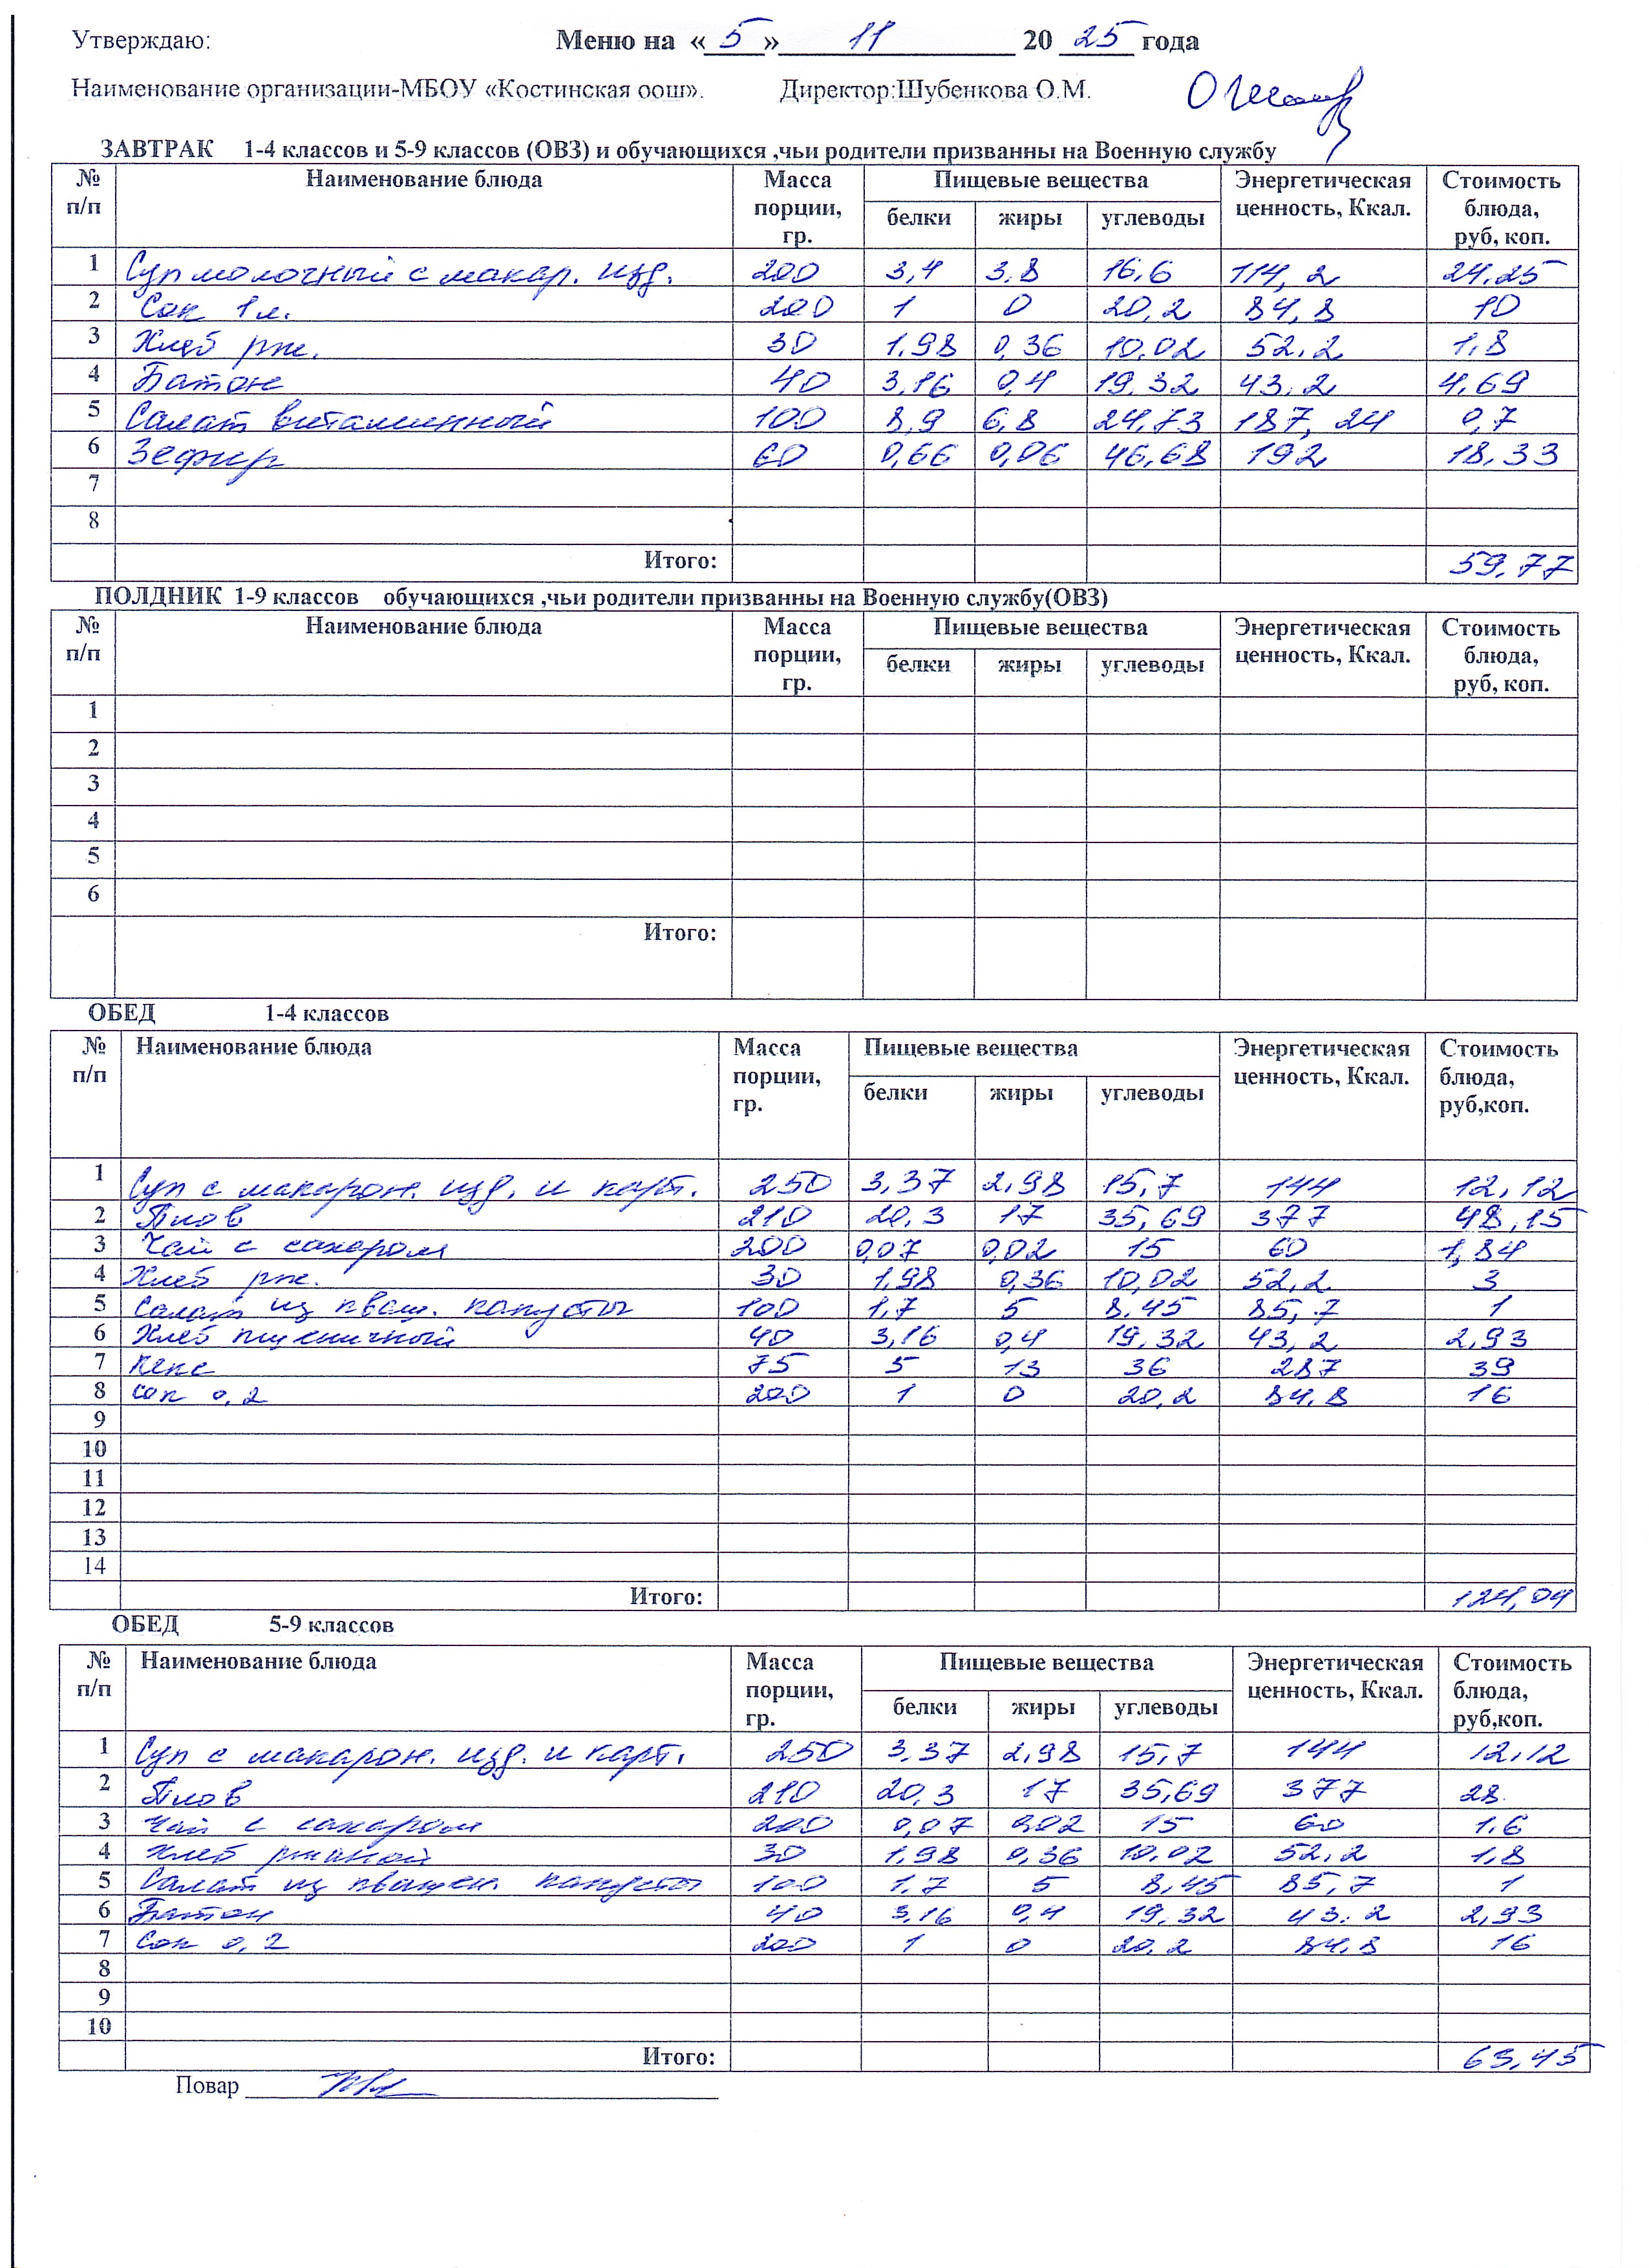 Утверждаю: Меню на « 5 » 11 20 25 года
Наименование организации-МБОУ «Костинская оош». Директор:Шубенкова О.М.
ЗАВТРАК 1-4 классов и 5-9 классов (ОВЗ) и обучающихся ,чьи родители призванны на Военную службу
№ п/п Наименование блюда Масса порции, гр. Пищевые вещества Энергетическая ценность, Ккал. Стоимость блюда, руб, коп.
белки жиры углеводы
1 Суп молочный с макар. изд. 200 3,4 3,8 16,6 114,2 24,25
2 Сок 1л. 200 1 0 20,2 84,8 10
3 Хлеб рж. 30 1,98 0,36 10,02 52,2 1,8
4 Батон 40 3,16 0,4 19,32 43,2 4,69
5 Салат витаминный 100 8,9 6,8 24,73 187,24 0,7
6 Зефир 60 0,66 0,06 46,68 192 18,33
7
8
Итого: 59,77
ПОЛДНИК 1-9 классов обучающихся ,чьи родители призванны на Военную службу(ОВЗ)
№ п/п Наименование блюда Масса порции, гр. Пищевые вещества Энергетическая ценность, Ккал. Стоимость блюда, руб, коп.
белки жиры углеводы
1
2
3
4
5
6
Итого:
ОБЕД 1-4 классов
№ п/п Наименование блюда Масса порции, гр. Пищевые вещества Энергетическая ценность, Ккал. Стоимость блюда, руб,коп.
белки жиры углеводы
1 Суп с макарон. изд. и карт. 250 3,37 2,98 15,7 144 12,12
2 Плов 210 20,3 17 35,69 377 48,15
3 Чай с сахаром 200 0,07 0,02 15 60 1,84
4 Хлеб рж. 30 1,98 0,36 10,02 52,2 3
5 Салат из кваш. капусты 100 1,7 5 8,45 85,7 1
6 Хлеб пшеничный 40 3,16 0,4 19,32 43,2 2,93
7 кекс 75 5 13 36 287 39
8 сок 0,2 200 1 0 20,2 84,8 16
9
10
11
12
13
14
Итого: 124,04
ОБЕД 5-9 классов
№ п/п Наименование блюда Масса порции, гр. Пищевые вещества Энергетическая ценность, Ккал. Стоимость блюда, руб,коп.
белки жиры углеводы
1 Суп с макарон. изд. и карт. 250 3,37 2,98 15,7 144 12,12
2 Плов 210 20,3 17 35,69 377 28
3 Чай с сахаром 200 0,07 0,02 15 60 1,6
4 Хлеб ржаной 30 1,98 0,36 10,02 52,2 1,8
5 Салат из квашен. капусты 100 1,7 5 8,45 85,7 1
6 Батон 40 3,16 0,4 19,32 43,2 2,93
7 Сок 0,2 200 1 0 20,2 84,8 16
8
9
10
Итого: 63,45
Повар